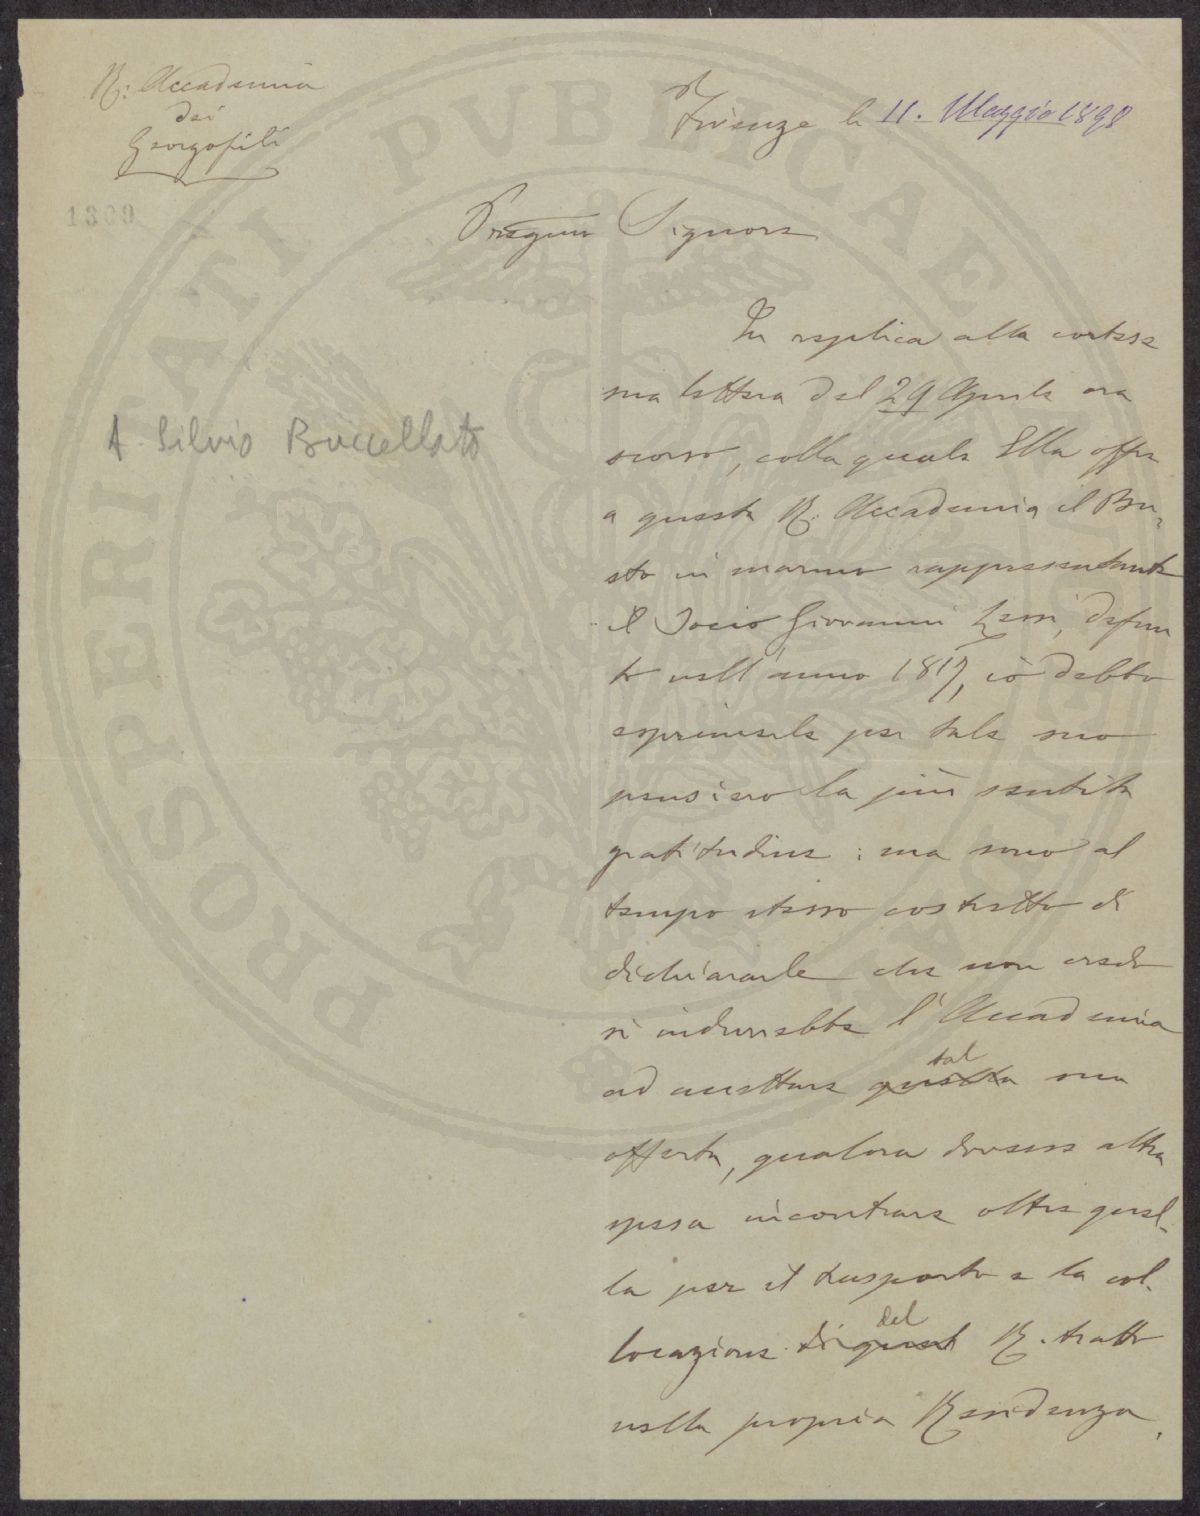 R: Accademia
dei
Georgofili
Firenze li 11. Maggio 1898
1800
Pregmo Signore
In replica alla cortese
sua lettera del 29 Aprile ora
scorso, colla quale Ella offre
A Silvio Buccellato
a questa R. Accademia il Bu-
sto in marmo rappresentante
il Socio Giovanni Lessi, defun
to nell'anno 1817, io debbo
esprimerle per tale suo
pensiero la più sentita
gratitudine: ma sono al
tempo stesso costretto di
dichiararle che non credo
si indurrebbe l'Accademia
ad accettare questa tal sua
offerta, qualora dovesse altra
spesa incontrare oltre quel-
la per il trasporto e la col-
locazione di quel del R.tratto
nella propria Residenza.
PROSPERITATI PVBLICAE AVGENDAE